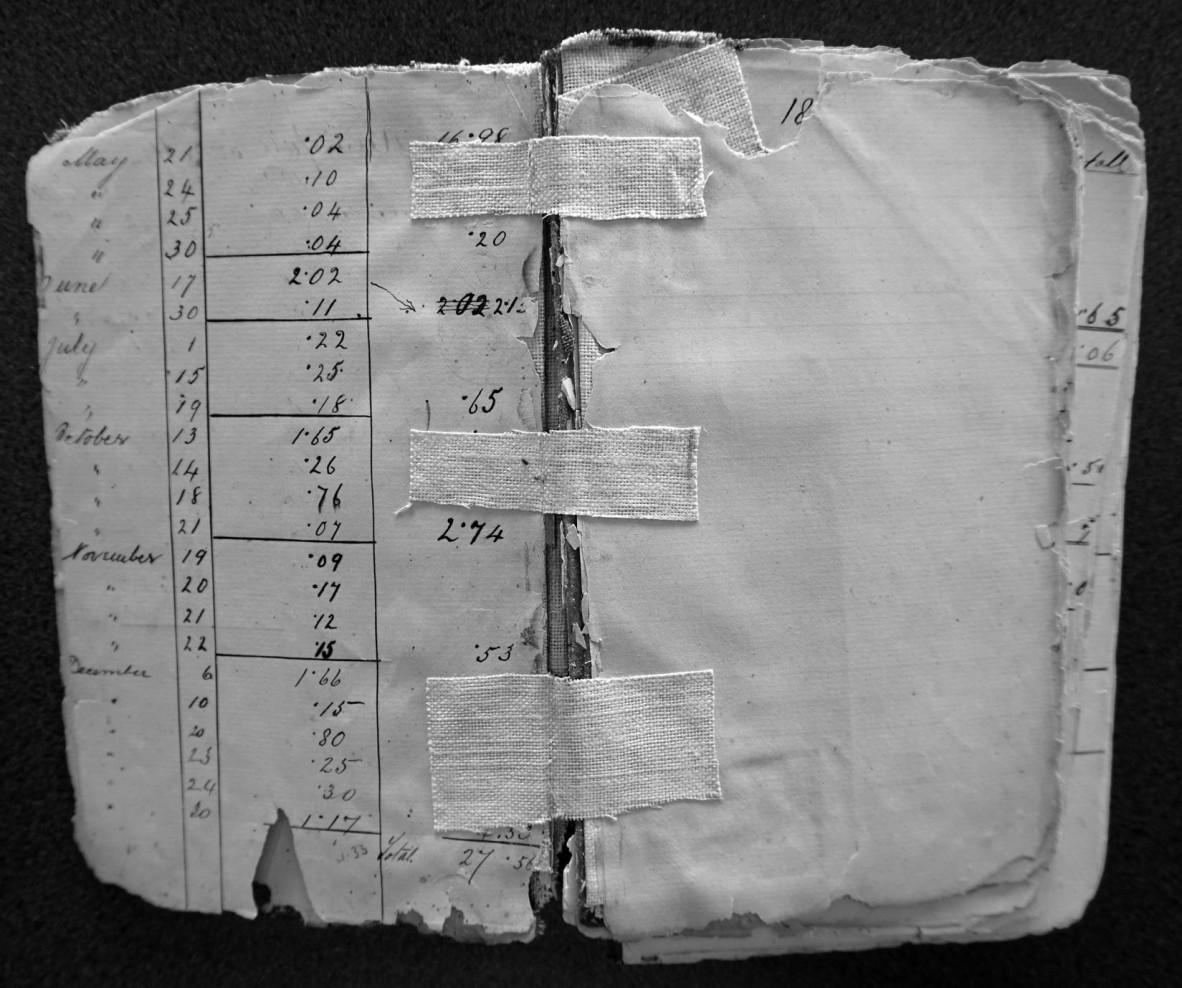 May 21 ·02 16·98
" 24 ·10
" 25 ·04
" 30 ·04 ·20
June 17 2·02
" 30 ·11 2·02 2·1
July 1 ·22
" 15 ·25
" 19 ·18 ·65
October 13 1·65
" 14 ·26
" 18 ·76
" 21 ·07 2·74
November 19 ·09
" 20 ·17
" 21 ·12
" 22 ·15 ·53
December 6 1·66
" 10 ·15
" 20 ·80
" 23 ·25
" 24 ·30
" 1·17
Total 27·56
18
fall
·65
·06